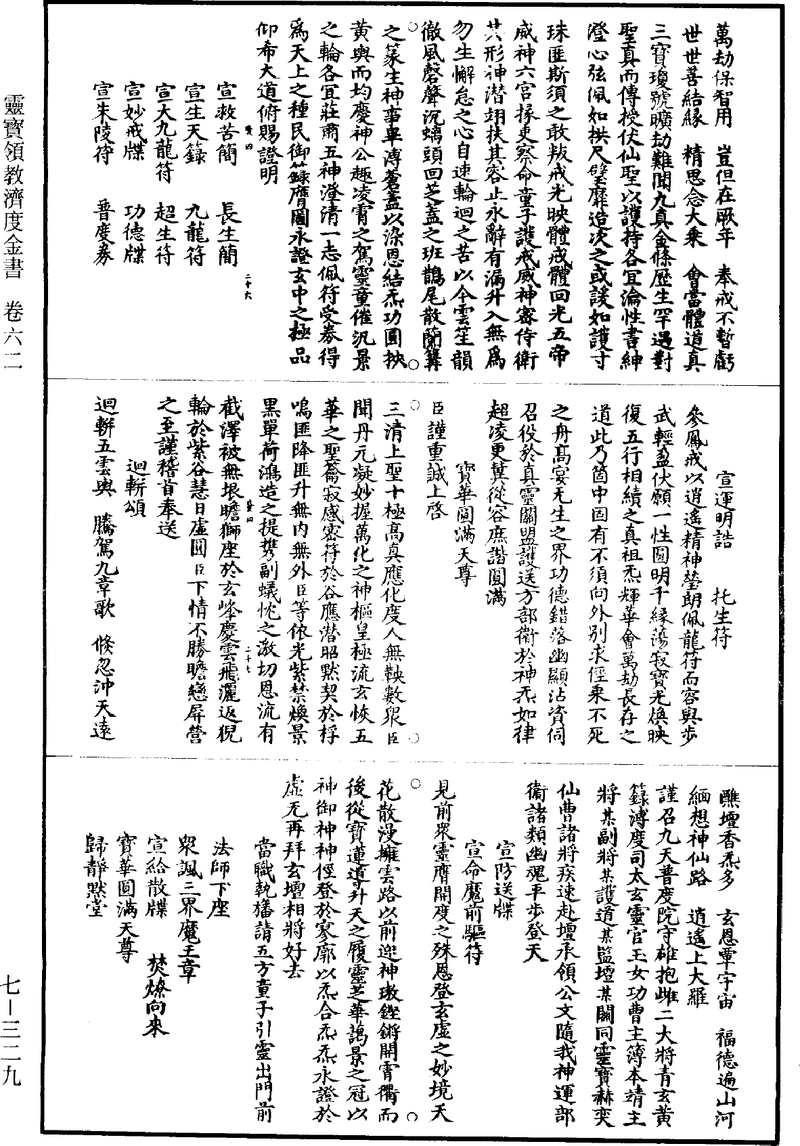 靈寶領教濟度金書 卷六二
七－三二九
萬劫保智用 豈但在厭年 奉戒不暫虧
世世善結緣 精思念大乘 會當體道真
三寶瓊號曠劫難聞九真金條歷生罕遇對
聖真而傳授伏仙聖以護持各宜瀹性書紳
澄心弦佩如拱尺璧靡造次之或談如護寸
珠匪斯須之敢叛戒光映體戒體回光五帝
威神六宮掾吏察命童子護戒威神密侍衛
其形神潛翊扶其容止永辭有漏升入無為
勿生懈怠之心自速輪迴之苦以今雲笙韻
徹風磬聲沉螭頭回芝蓋之班鵲尾散蘭篝
之篆生神事畢溥蒼蓋以染恩結炁功圓抰
黃輿而均慶神公趣凌霄之駕靈童催汎景
之輪各宜莊肅五神澄清一志佩符受券得
為天上之種民御籙膺圖永證玄中之極品
仰希大道俯賜證明
宣救苦簡 長生簡
宣生天籙 九龍符
宣大九龍符 超生符
宣妙戒牒 功德牒
宣朱陵符 普度券
二十六
宣運明誥 托生符
參鳳戒以逍遙精神瑩朗佩龍符而容與步
武輕盈伏願一性圓明千緣蕩寂寶光煥映
復五行相續之真祖炁輝華會萬劫長存之
道此乃箇中固有不須向外別求徑乘不死
之舟高宴无生之界功德錯落幽顯沾資伺
召役於真靈關盟護送方部衛於神炁如律
超凌更冀從容庶諧圓滿
寶華圓滿天尊
臣謹重誠上啓
三清上聖十極高真應化度人無軼數眾臣
聞丹元凝妙握萬化之神樞皇極流玄恢五
華之聖籥寂感密符於谷應潛昭默契於桴
鳴匪降匪升無内無外臣等依光紫禁煥景
黑單荷鴻造之提攜副蟻忱之激切恩流有
截澤被無垠瞻獅座於玄峰慶雲飛灑返猊
輪於紫谷慧日虛圓臣下情不勝瞻戀屏營
之至謹稽首奉送
迴軿頌
迴軿五雲輿 騰駕九章歌 倏忽沖天遠
二十七
醮壇香炁多 玄恩覃宇宙 福德遍山河
緬想神仙路 逍遙上大羅
謹召九天普度院守雄抱雌二大將青玄黃
籙溥度司太玄靈官玉女功曹主簿本靖主
將某副將某護道某監壇某關同靈寶赫奕
仙曹諸將疾速赴壇承領公文隨我神運部
衛諸類幽魂平步登天
宣防送牒
宣命魔前驅符
見前眾靈膺開度之殊恩登玄虛之妙境天
花散漫擁雲路以前迎神璈鏗鏘開霄衢而
後從寶蓮導升天之履靈芝華謁景之冠以
神御神神徑登於寥廓以炁合炁炁永證於
虛无再拜玄壇相將好去
當職執旛請五方童子引靈出門前
法師下座
眾諷三界魔王章
宣給散牒 焚燎向來
寶華圓滿天尊
歸靜默堂